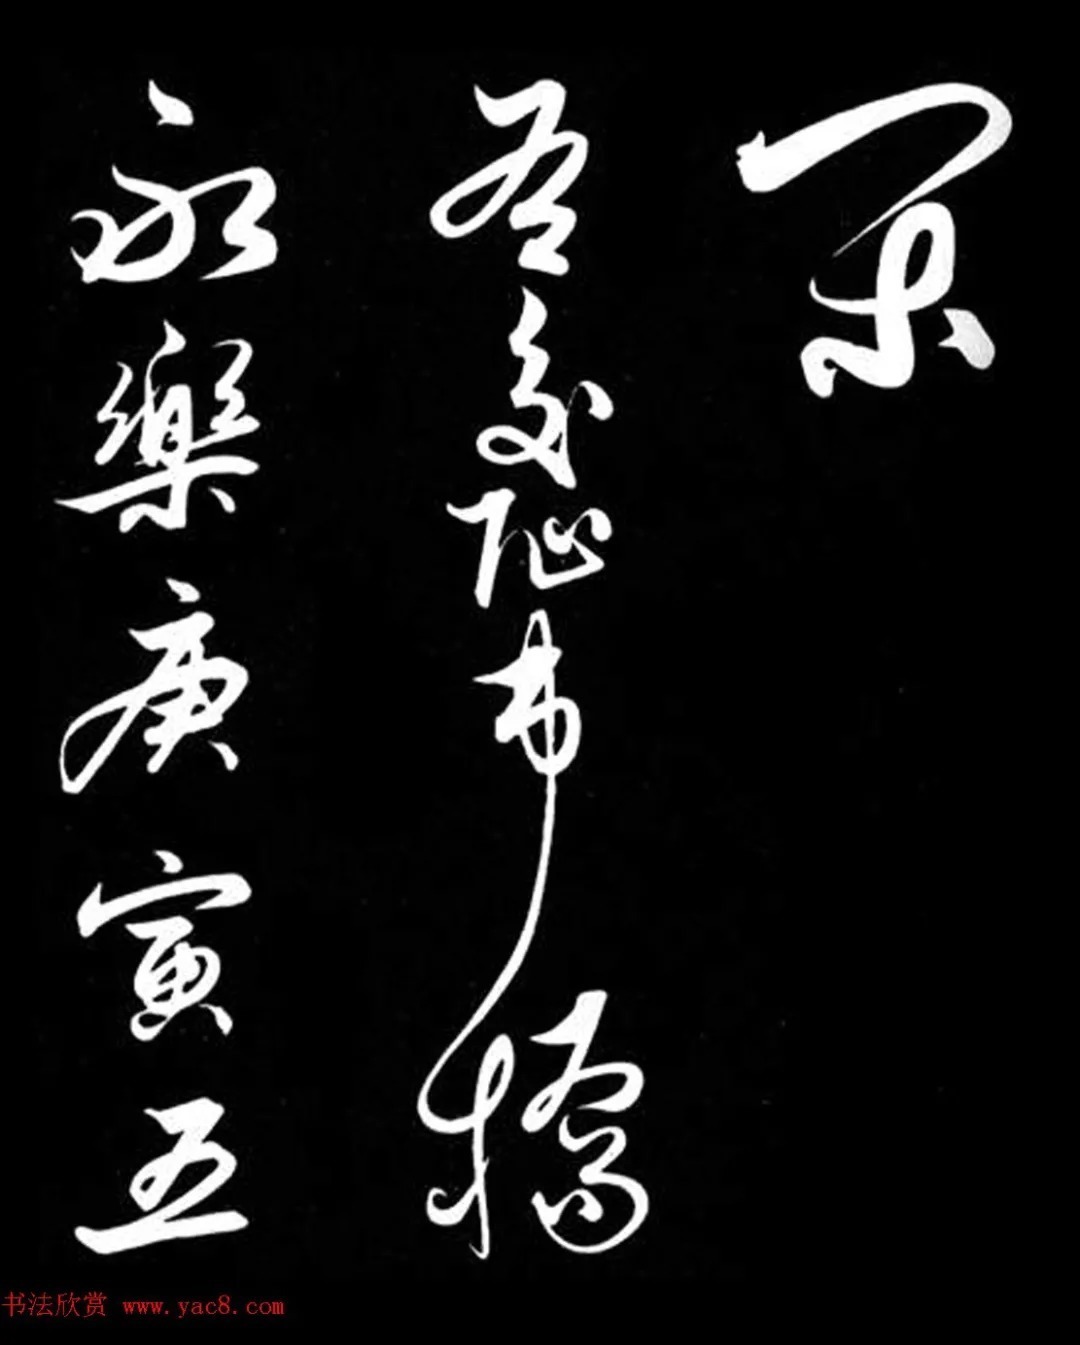 闌
右交阯市橋
永樂庚寅五
书法欣赏 www.yac8.com